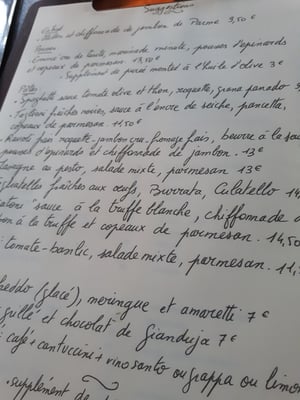 Suggestions
Melon et chiffonnade de jambon de Parme 3,50 €
de truite, marinade menate, pousses d'épinards
et copeaux de parmesan
. Supplément de purée monté à l'huile d'olive 3 €
Pâtes
. Spaghetti sauce tomate olive et thon, roquette, grana panado
fraîches noires, sauce à l'encre de seiche, pancetta,
copeaux de parmesan. 11,50 €
roquette - jambon cru - fromage frais, beurre à la sau
pousses d'épinards et chiffonnade de jambon. 13 €
au pesto, salade mixte, parmesan 13 €
fraîches aux œufs, Burrata, Culatello 14
sauce à la truffe blanche, chiffonnade d
à la truffe et copeaux de parmesan. 14,50
tomate-basilic, salade mixte, parmesan. 11,
(glacé), meringue et amaretti 7 €
et chocolat de Gianduja 7 €
café + cantuccini + vino santo ou grappa ou limo
. supplément de